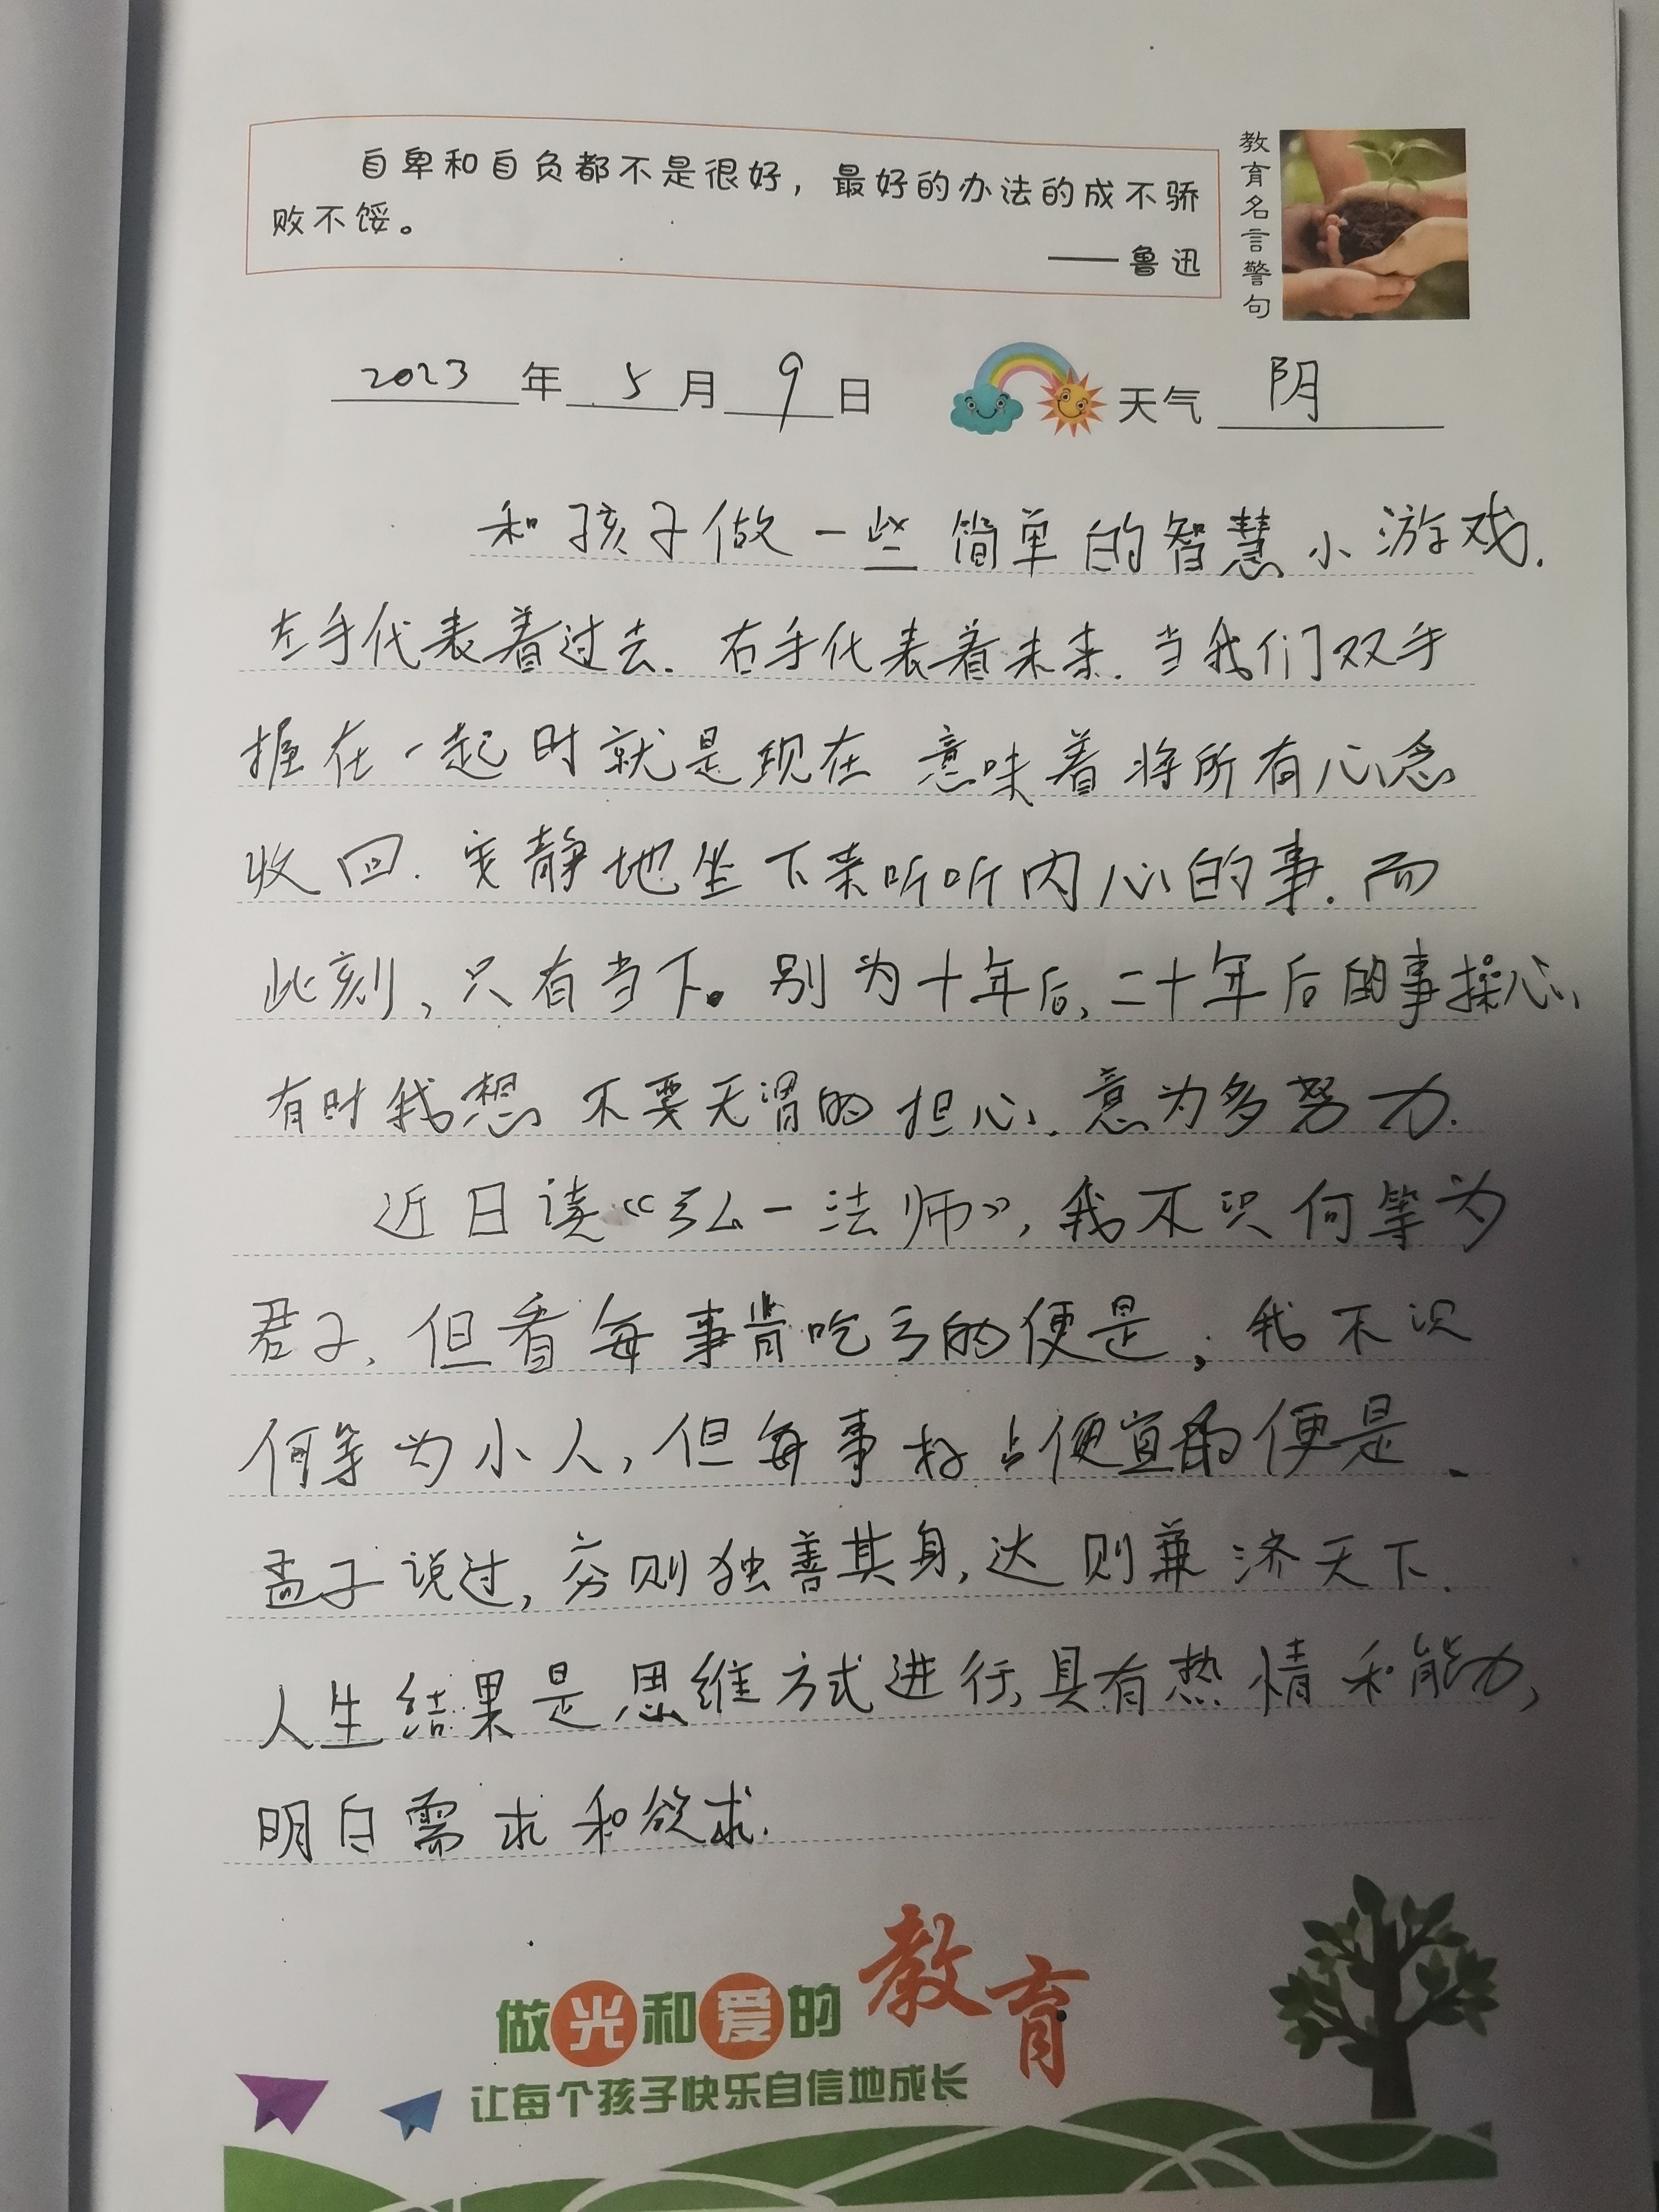 自卑和自负都不是很好，最好的办法的成不骄
败不馁。
——鲁迅
教育名言警句
2023年5月9日 天气 阴
和孩子做一些简单的智慧小游戏.
左手代表着过去.右手代表着未来.当我们双手
握在一起时就是现在 意味着将所有心念
收回.安静地坐下来听听内心的事.而
此刻,只有当下。别为十年后,二十年后的事操心,
有时我想 不要无谓的担心.意为多努力.
近日读《弘一法师》,我不识何等为
君子,但看每事肯吃亏的便是;我不识
何等为小人,但每事好占便宜的便是.
孟子说过,穷则独善其身,达则兼济天下.
人生结果是思维方式进行,具有热情和能力,
明白需求和欲求.
做光和爱的教育
让每个孩子快乐自信地成长